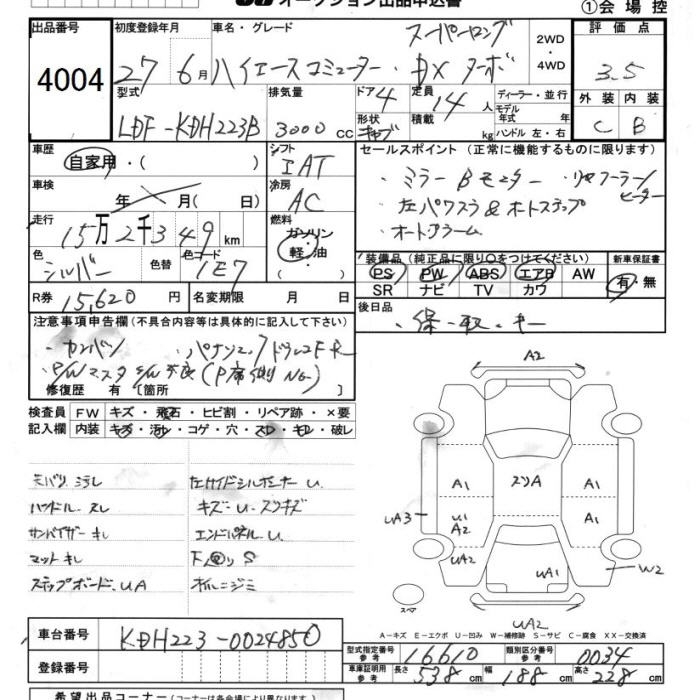 オークション出品申込書 ①会場控
出品番号 初度登録年月 車名・グレード スーパーロング 2WD ・4WD 評価点
4004 27 6月 ハイエースコミューター・DX ターボ 3.5
型式 排気量 ドア 4 定員 14人 ディーラー・並行 外装 内装
LDF-KDH223B 3000cc 形状 積載 kg モデル年式 年 ハンドル 左・右 C B
車歴 自家用・( ) シフト IAT セールスポイント (正常に機能するものに限ります)
車検 年 月( 日) 冷房 AC ・ミラーBモニター
走行 15万2千349km 燃料 ガソリン 軽・油 左パワスラ&オートステップ
・オートアラーム
色 シルバー 色替 色コード 1E7 装備品 (純正品に限り○をつけてください) 新車保証書
PS PW ABS エアB AW 有・無
SR ナビ TV カワ
R券 15,620円 名変期限 月 日 後日品
注意事項申告欄 (不具合内容等は具体的に記入して下さい) ・保・取・キー
P/Wマスタ S/W不良 (P席側NG)
修復歴 有 [箇所
検査員 FW キズ・飛石・ヒビ割・リペア跡・×要
記入欄 内装 キズ・汚レ・コゲ・穴・スレ・キレ・破レ
ハンドル スレ キズ・U・スリキズ
サンバイザー キレ エンドパネル U
マットキレ 下回り S
ステップボード UA
A2
A1 スリA A1
UA3 U1 A2 A1
UA2 UA1 W2
スペア UA2
A-キズ E-エクボ U-凹み W-補修跡 S-サビ C-腐食 XX-交換済
車台番号 KDH223-0024850 型式指定番号 参考 16610 類別区分番号 参考 0034
登録番号 車庫証明用 参考 長さ 538cm 幅 188cm 高さ 228cm
希望出品コーナー